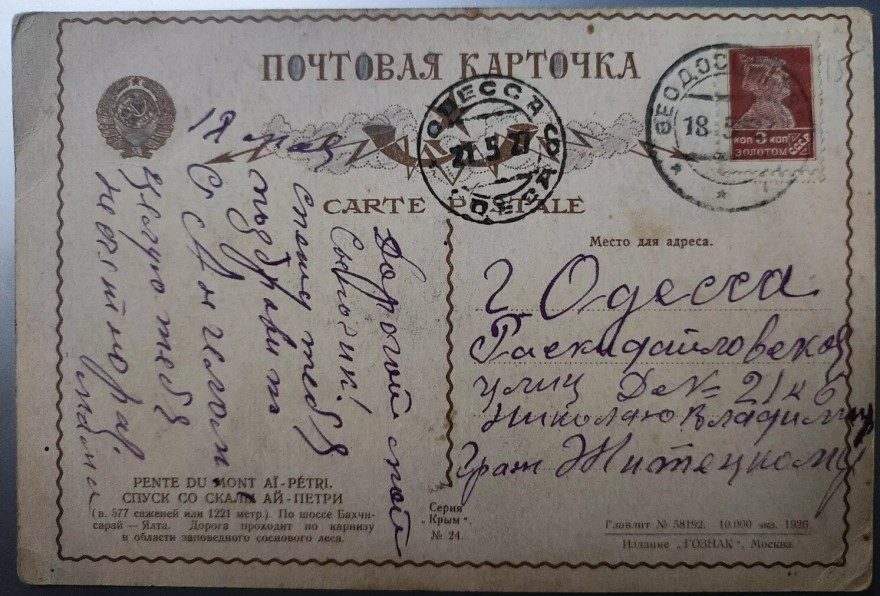 ПОЧТОВАЯ КАРТОЧКА
CARTE POSTALE
ОДЕССА
21.5.27
ODESSA
ѲЕОДОС
18
КОП 3 КОП
ЗОЛОТОМ
СССР
18 мая
Дорогой мой
Сыночик!
спешу тебя
поздравить
С Ангелом
целую тебя
мама
Место для адреса.
г. Одесса
Раскидайловская
улиц Де № 21 к 6
Николаю Владимир
Граж Житецкому
PENTE DU MONT AÏ-PÉTRI.
СПУСК СО СКАЛЫ АЙ-ПЕТРИ
(в. 577 саженей или 1221 метр.). По шоссе Бахчи-
сарай — Ялта. Дорога проходит по карнизу
в области заповедного соснового леса.
Серия
„Крым“.
№ 24.
Главлит № 58192. 10.000 экз. 1926.
Издание „ГОЗНАК“, Москва.